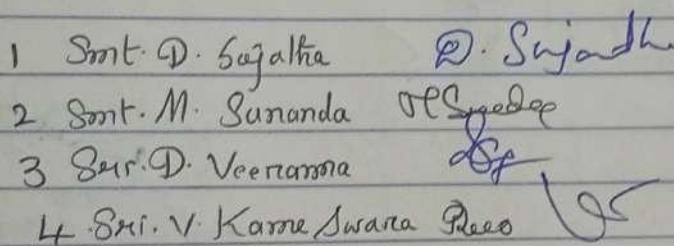 1 Smt. D. Sujatha D. Sujandh
2 Smt. M. Sunanda
3 Sri. D. Veeranna
4. Sri. V. Kame Swara Rao